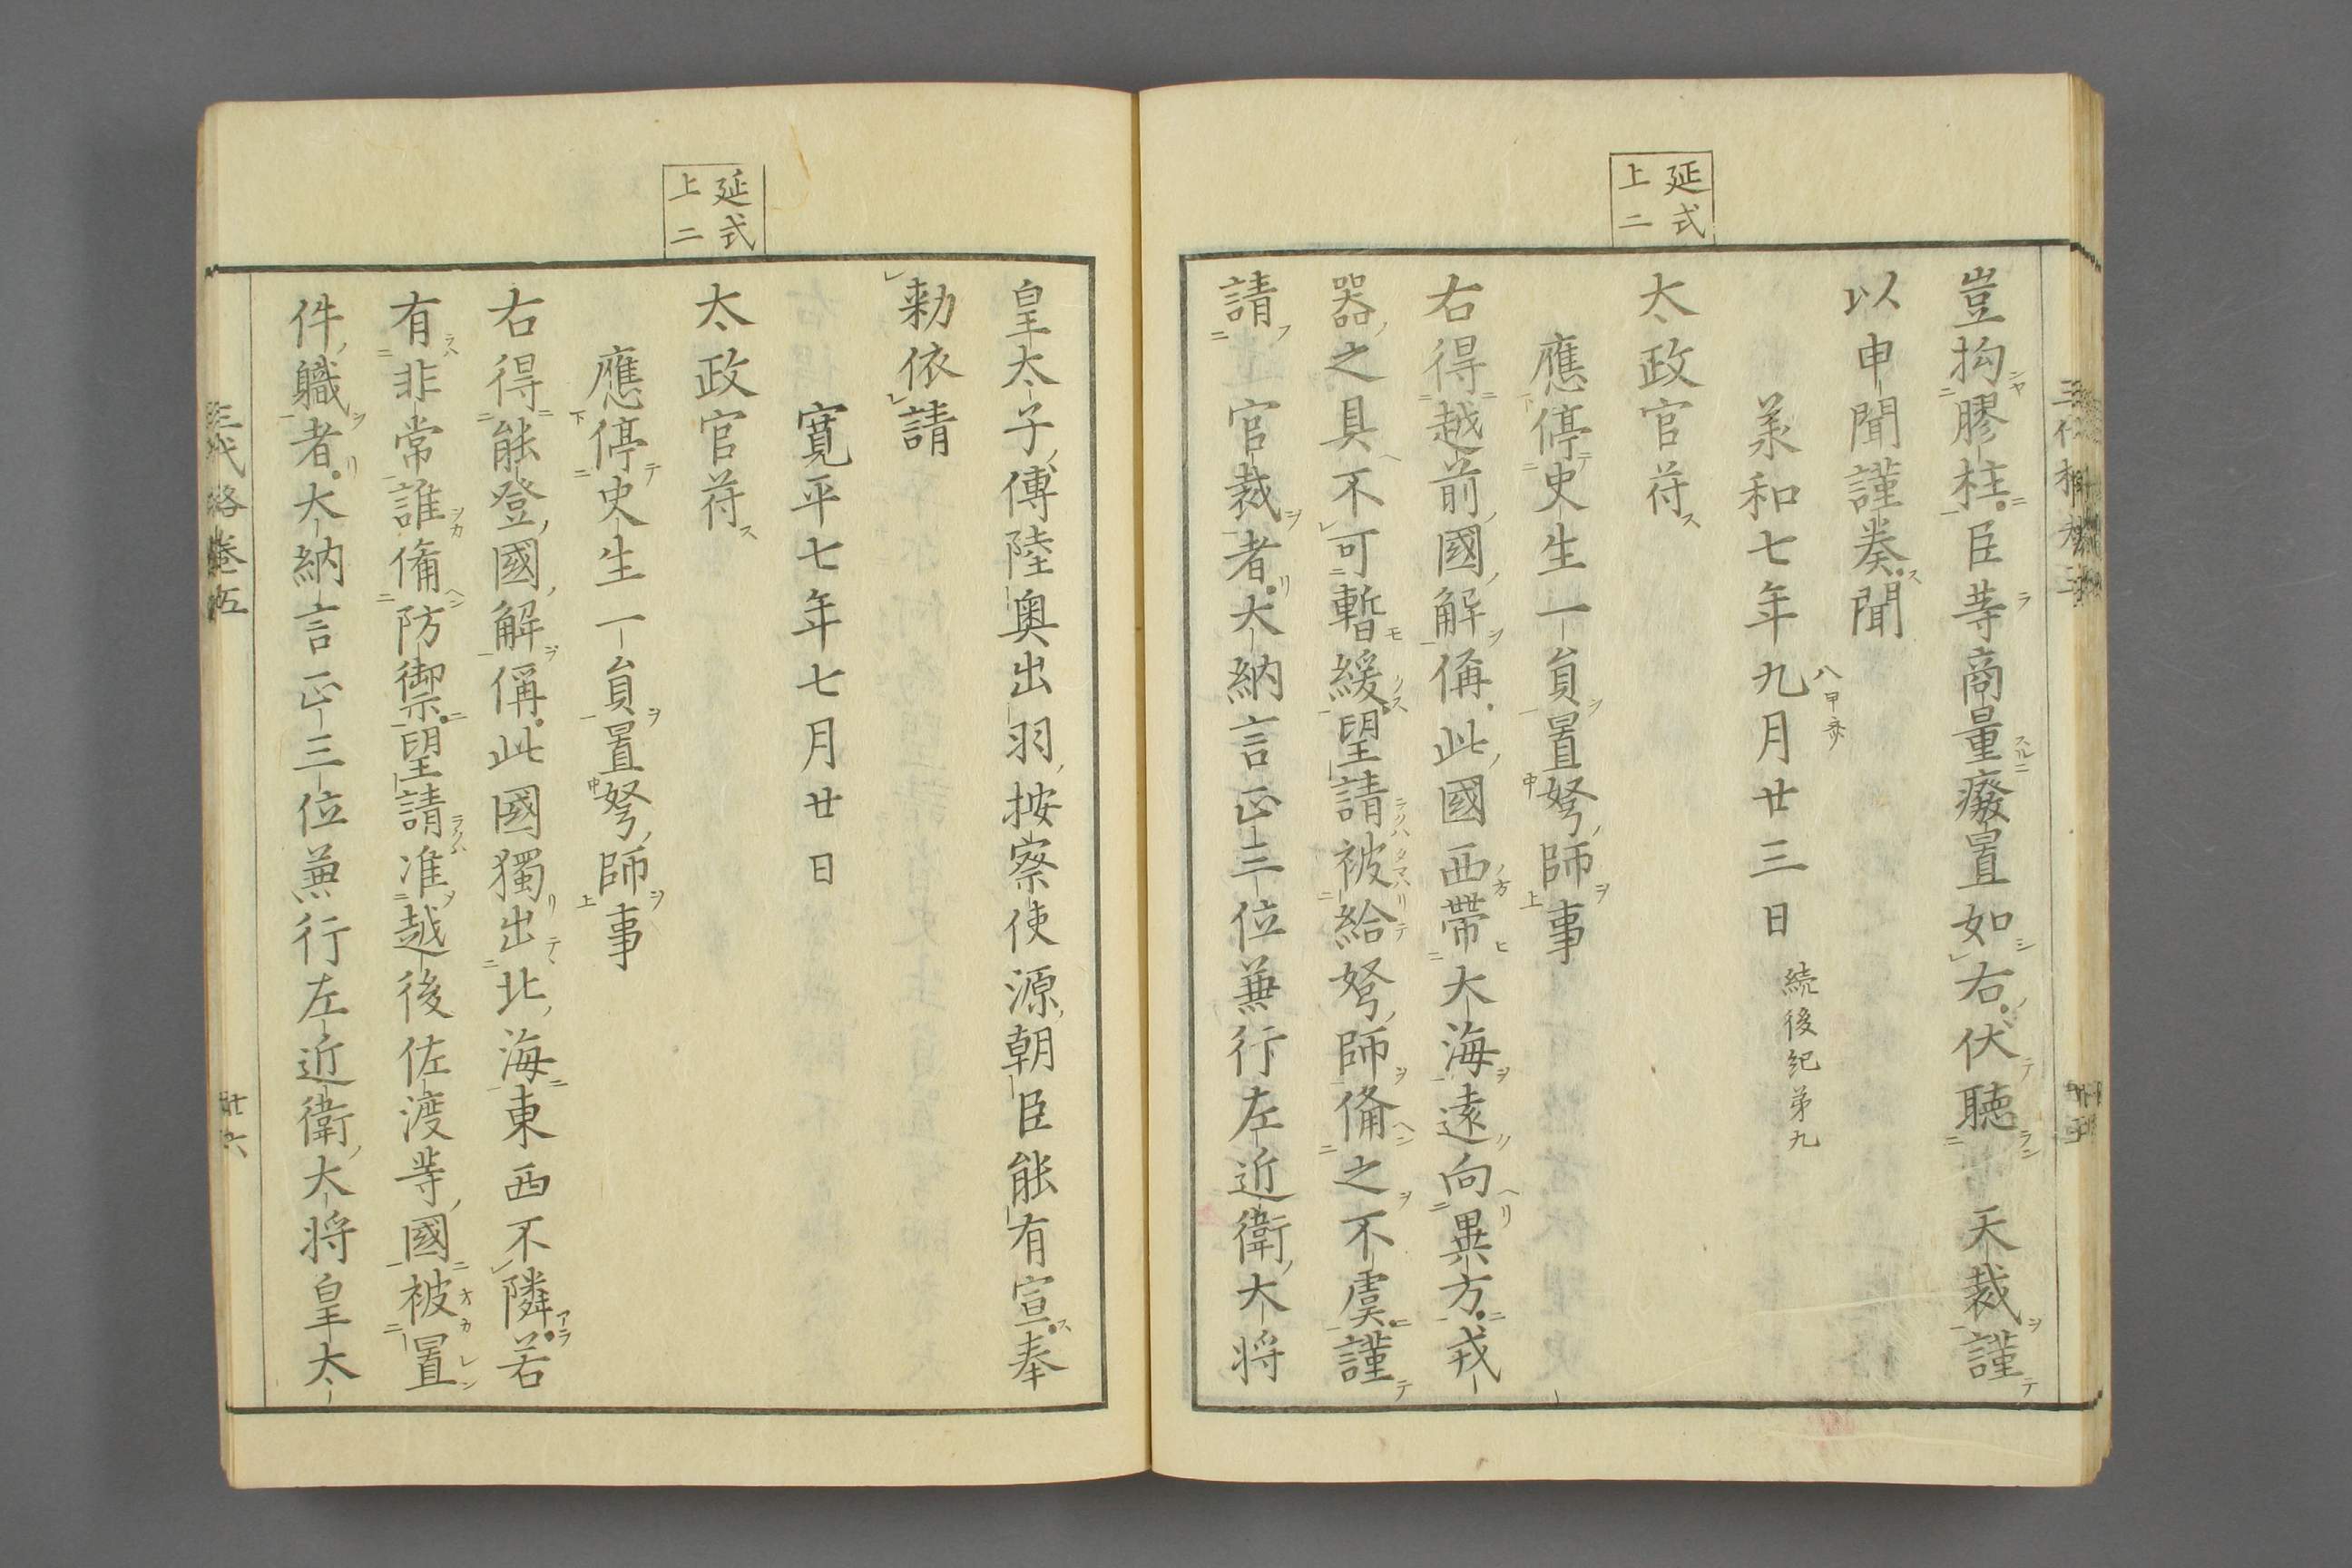 延式
上二
豈拘膠柱臣等商量廢置如右伏聽　天裁謹
以申聞謹奏聞
承和七年九月廿三日 続後紀弟九
太政官符
應停史生一員置弩師事
右得越前國解偁此國西帶大海遠向異方戎
器之具不可暫緩望請被給弩師備之不虞謹
請　官裁者大納言正三位兼行左近衛大将
延式
上二
皇太子傅陸奥出羽按察使源朝臣能有宣奉
勅依請
寛平七年七月廿日
太政官符
應停史生一員置弩師事
右得能登國解偁此國獨出北海東西不隣若
有非常誰備防禦望請准越後佐渡等國被置
件職者大納言正三位兼行左近衛大将皇太
三代格巻五
廿六